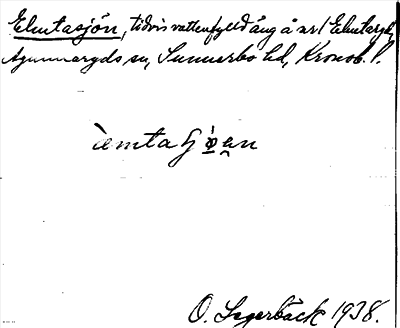 Elmtasjön, tidvis vattenfylld äng å nr 1 Elmteryd,
Agunnaryds sn, Sunnerbo hd, Kronob. l.
O. Segerbäck 1938.